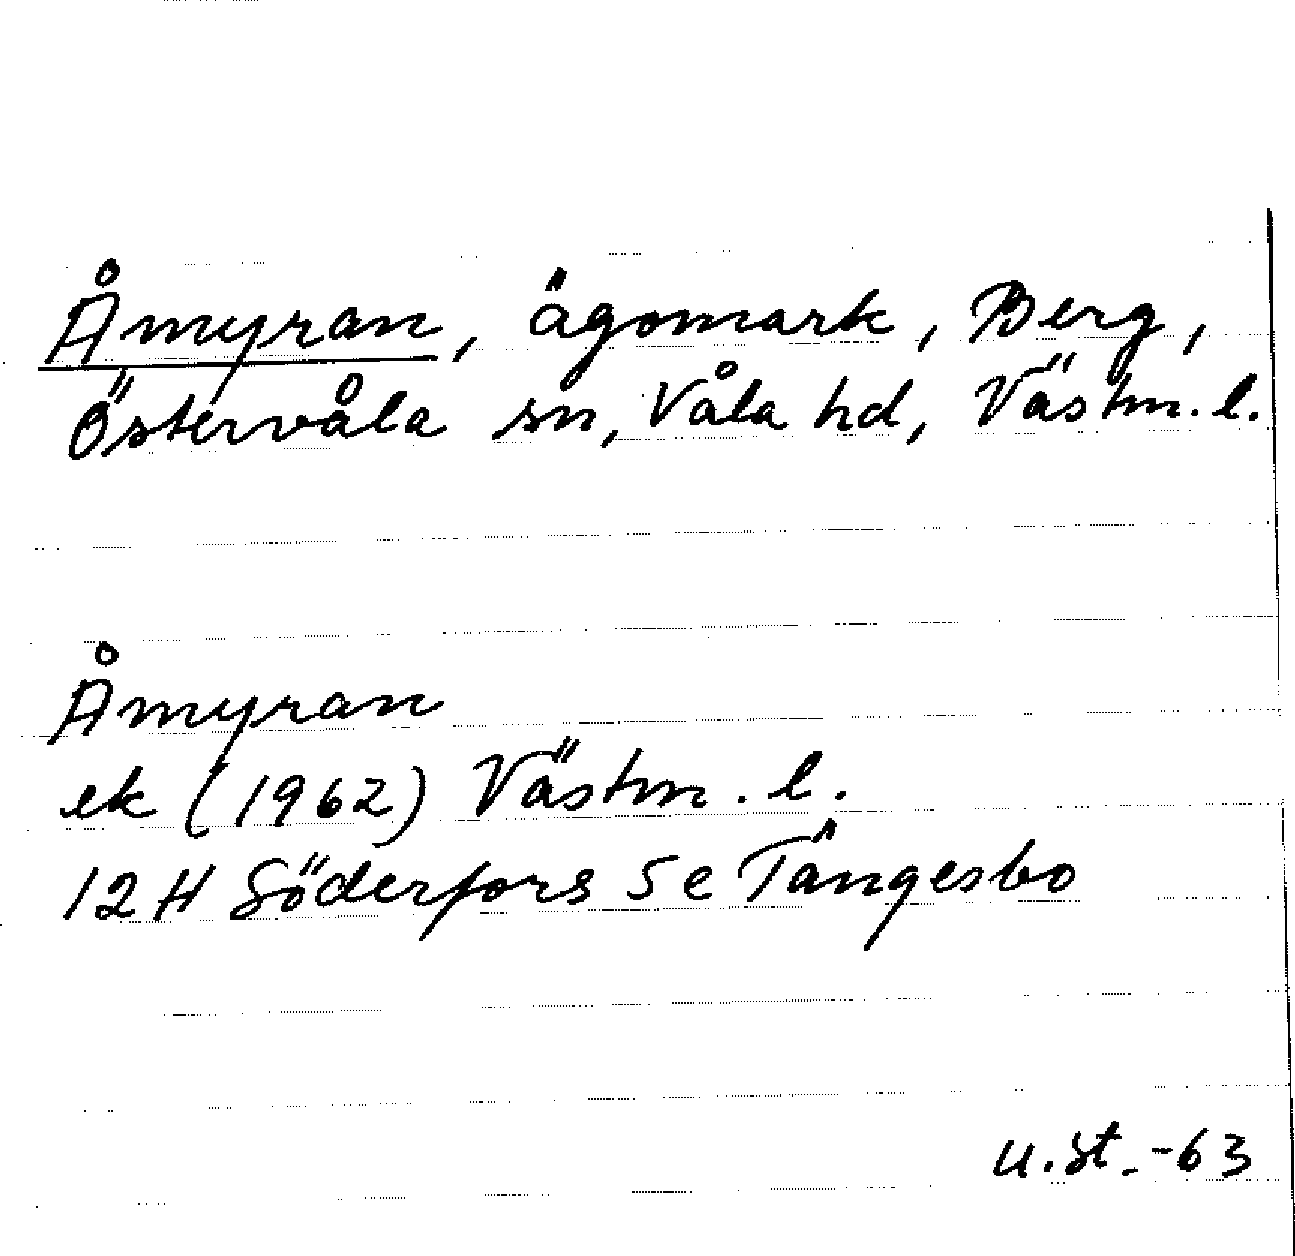 Åmyran, ägomark, Berg,
Östervåla sn, Våla hd, Västm. l.
Åmyran
ek (1962) Västm. l.
12 H Söderfors 5 e Tängesbo
u. St. -63